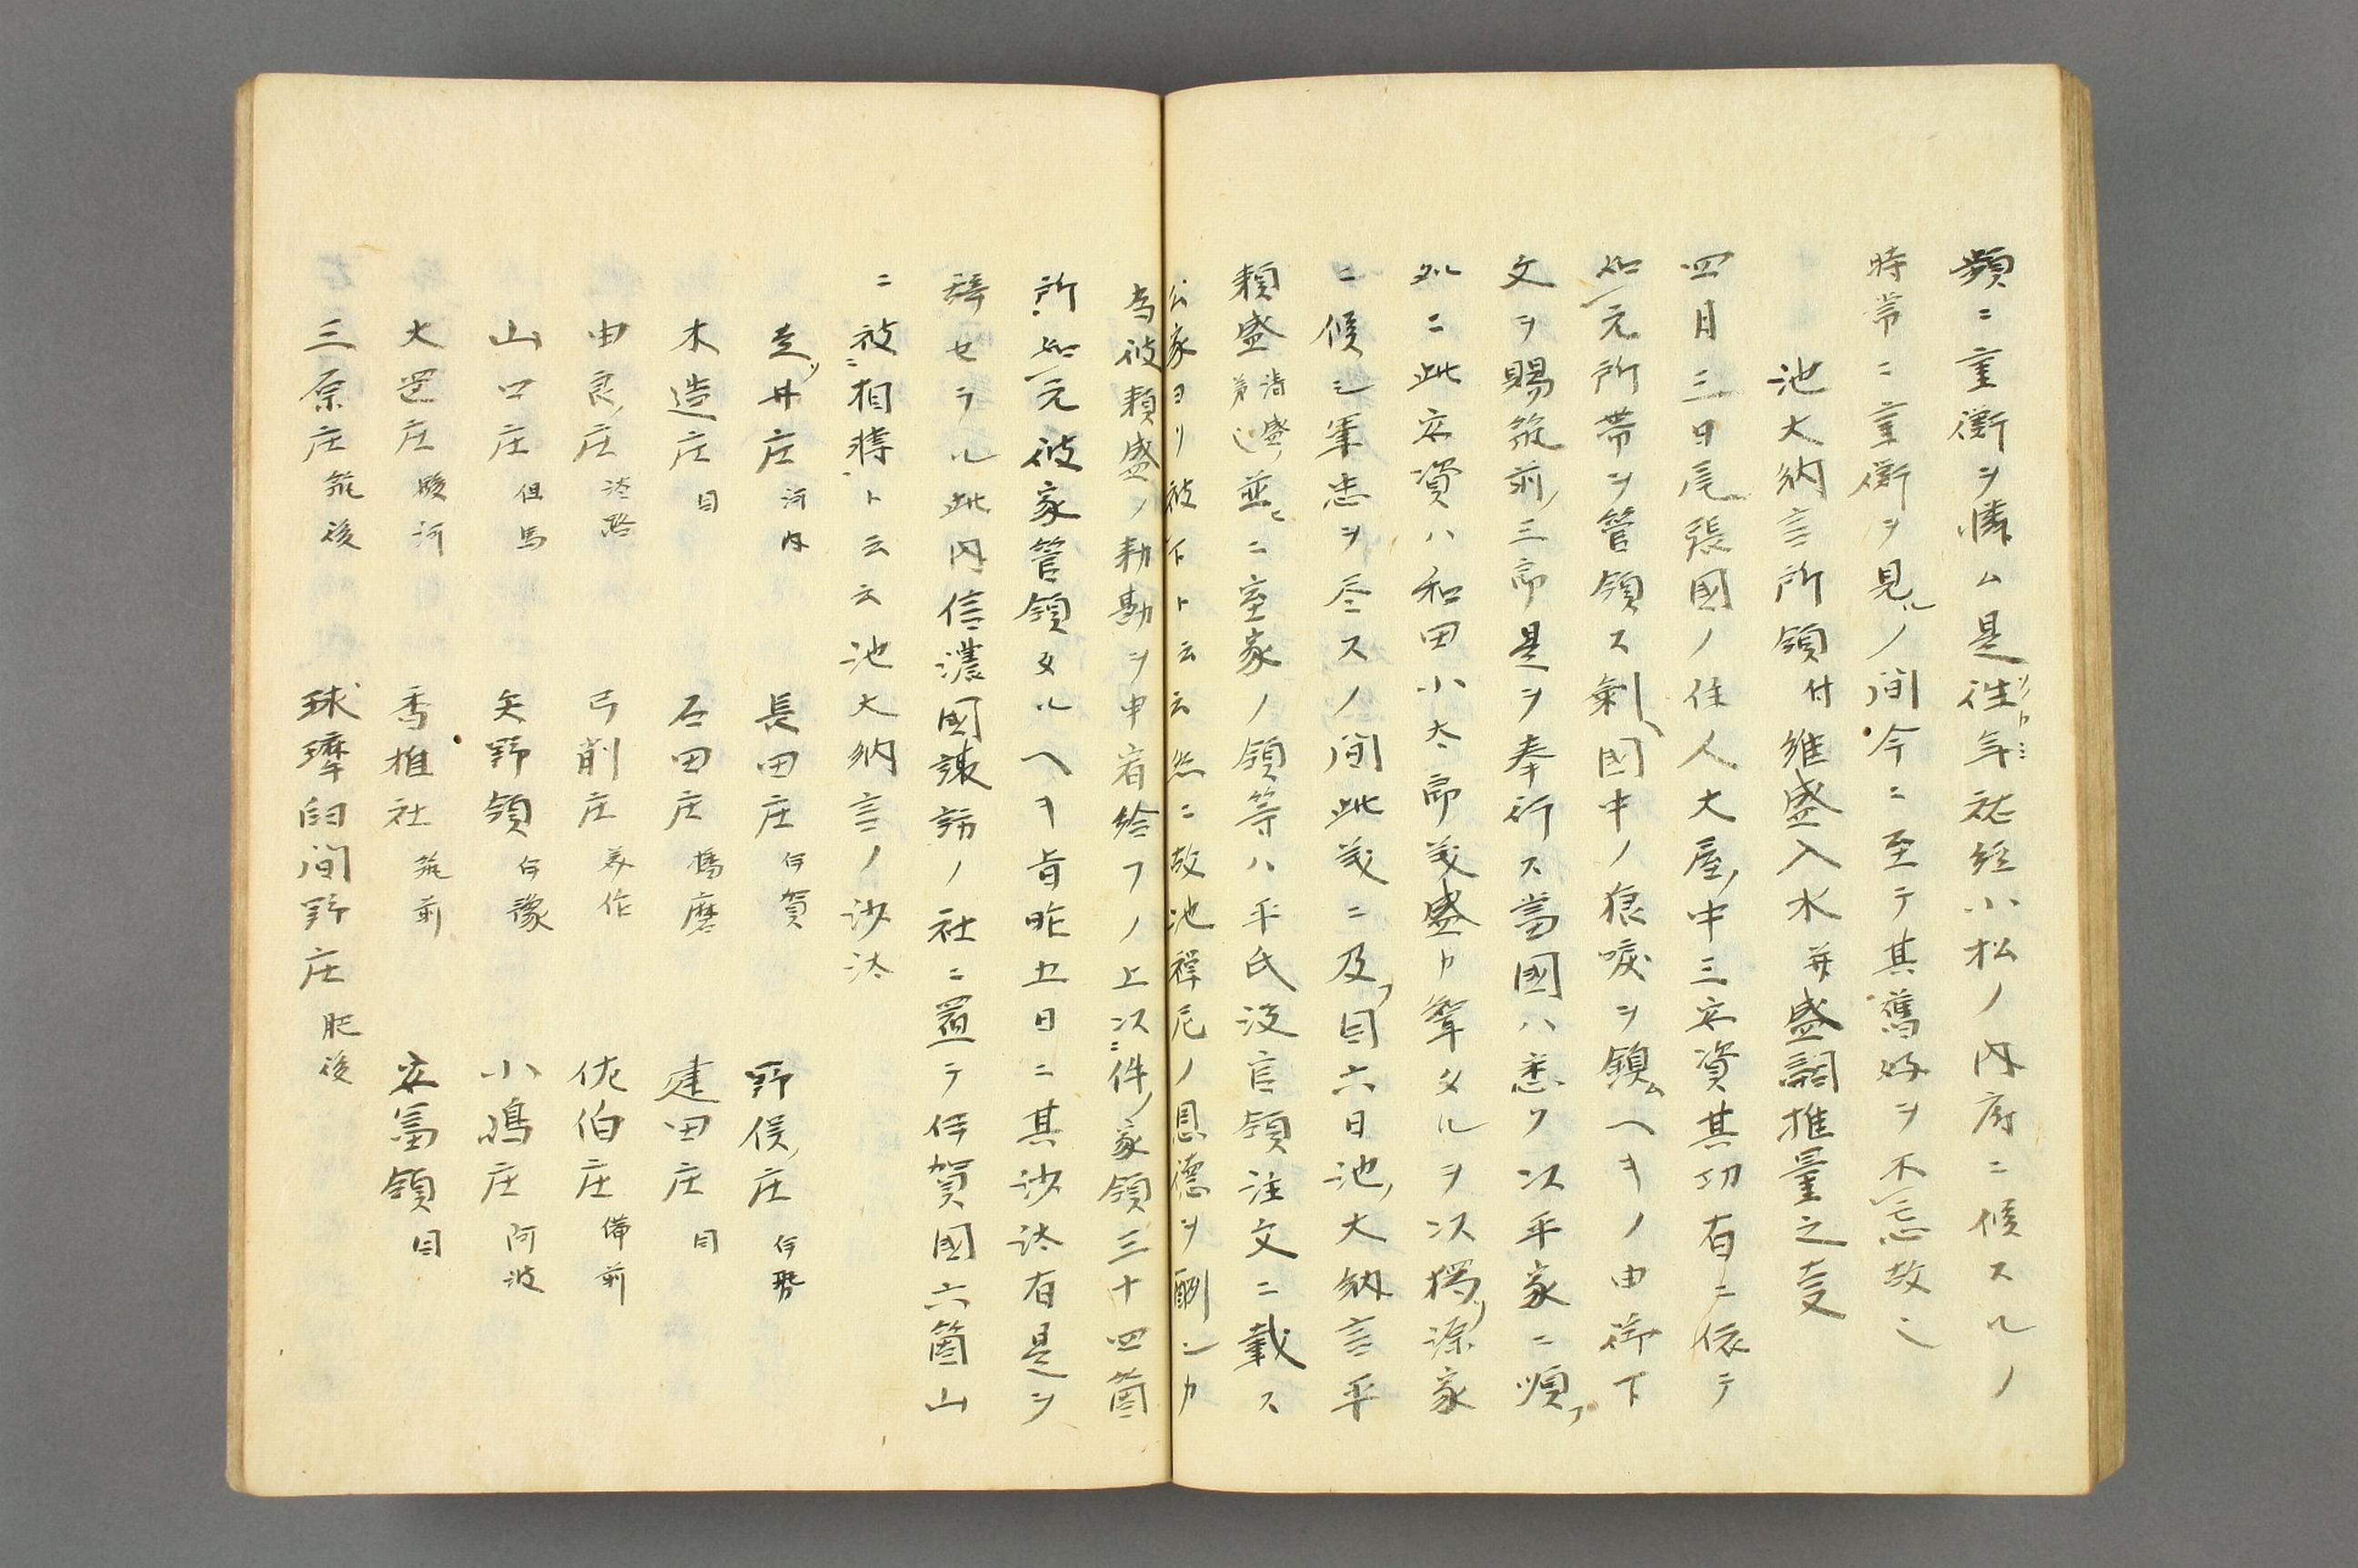 頻ニ重衡ヲ憐ム是往年祐経小松ノ内府ニ候スルノ
時常ニ重衡ヲ見ルノ間今ニ至テ其舊好ヲ不忘故也
池大納言所領付維盛入水并盛詞推量之支
四月三日尾張國ノ住人大屋中三安資其功有ニ依テ
如元所帯ヲ管領ス剰國中ノ狼唳ヲ鎮ムヘキノ由御下
文ヲ賜筑前三郎是ヲ奉行ス當國ハ悉ク以平家ニ順フ
処ニ此安資ハ和田小太郎義盛カ聟タルヲ以獨リ源家
ニ候シ軍忠ヲ尽スノ間此義ニ及フ同六日池大納言平
頼盛清盛弟也並ニ室家ノ領等ハ平氏没官領注文ニ載ス
公家ヨリ被下ト云云然ニ故池禅尼ノ恩徳ヲ酬ンカ
為彼頼盛ノ勅勘ヲ申宥給フノ上以件家領三十四箇
所如元彼家管領タルヘキ旨昨五日ニ其沙汰有是ヲ
辞セラル此内信濃國諏訪ノ社ニ置テ伊賀國六箇山
ニ被相博ト云云池大納言ノ沙汰
走井庄 河内 長田庄 伊賀 野俣庄 伊勢
木造庄 同 石田庄 播磨 建田庄 同
由良庄 淡路 弓削庄 美作 佐伯庄 備前
山口庄 但馬 矢野領 伊豫 小嶋庄 阿波
大岡庄 駿河 香椎社 筑前 安富領 同
三原庄 筑後 球磨臼間野庄 肥後